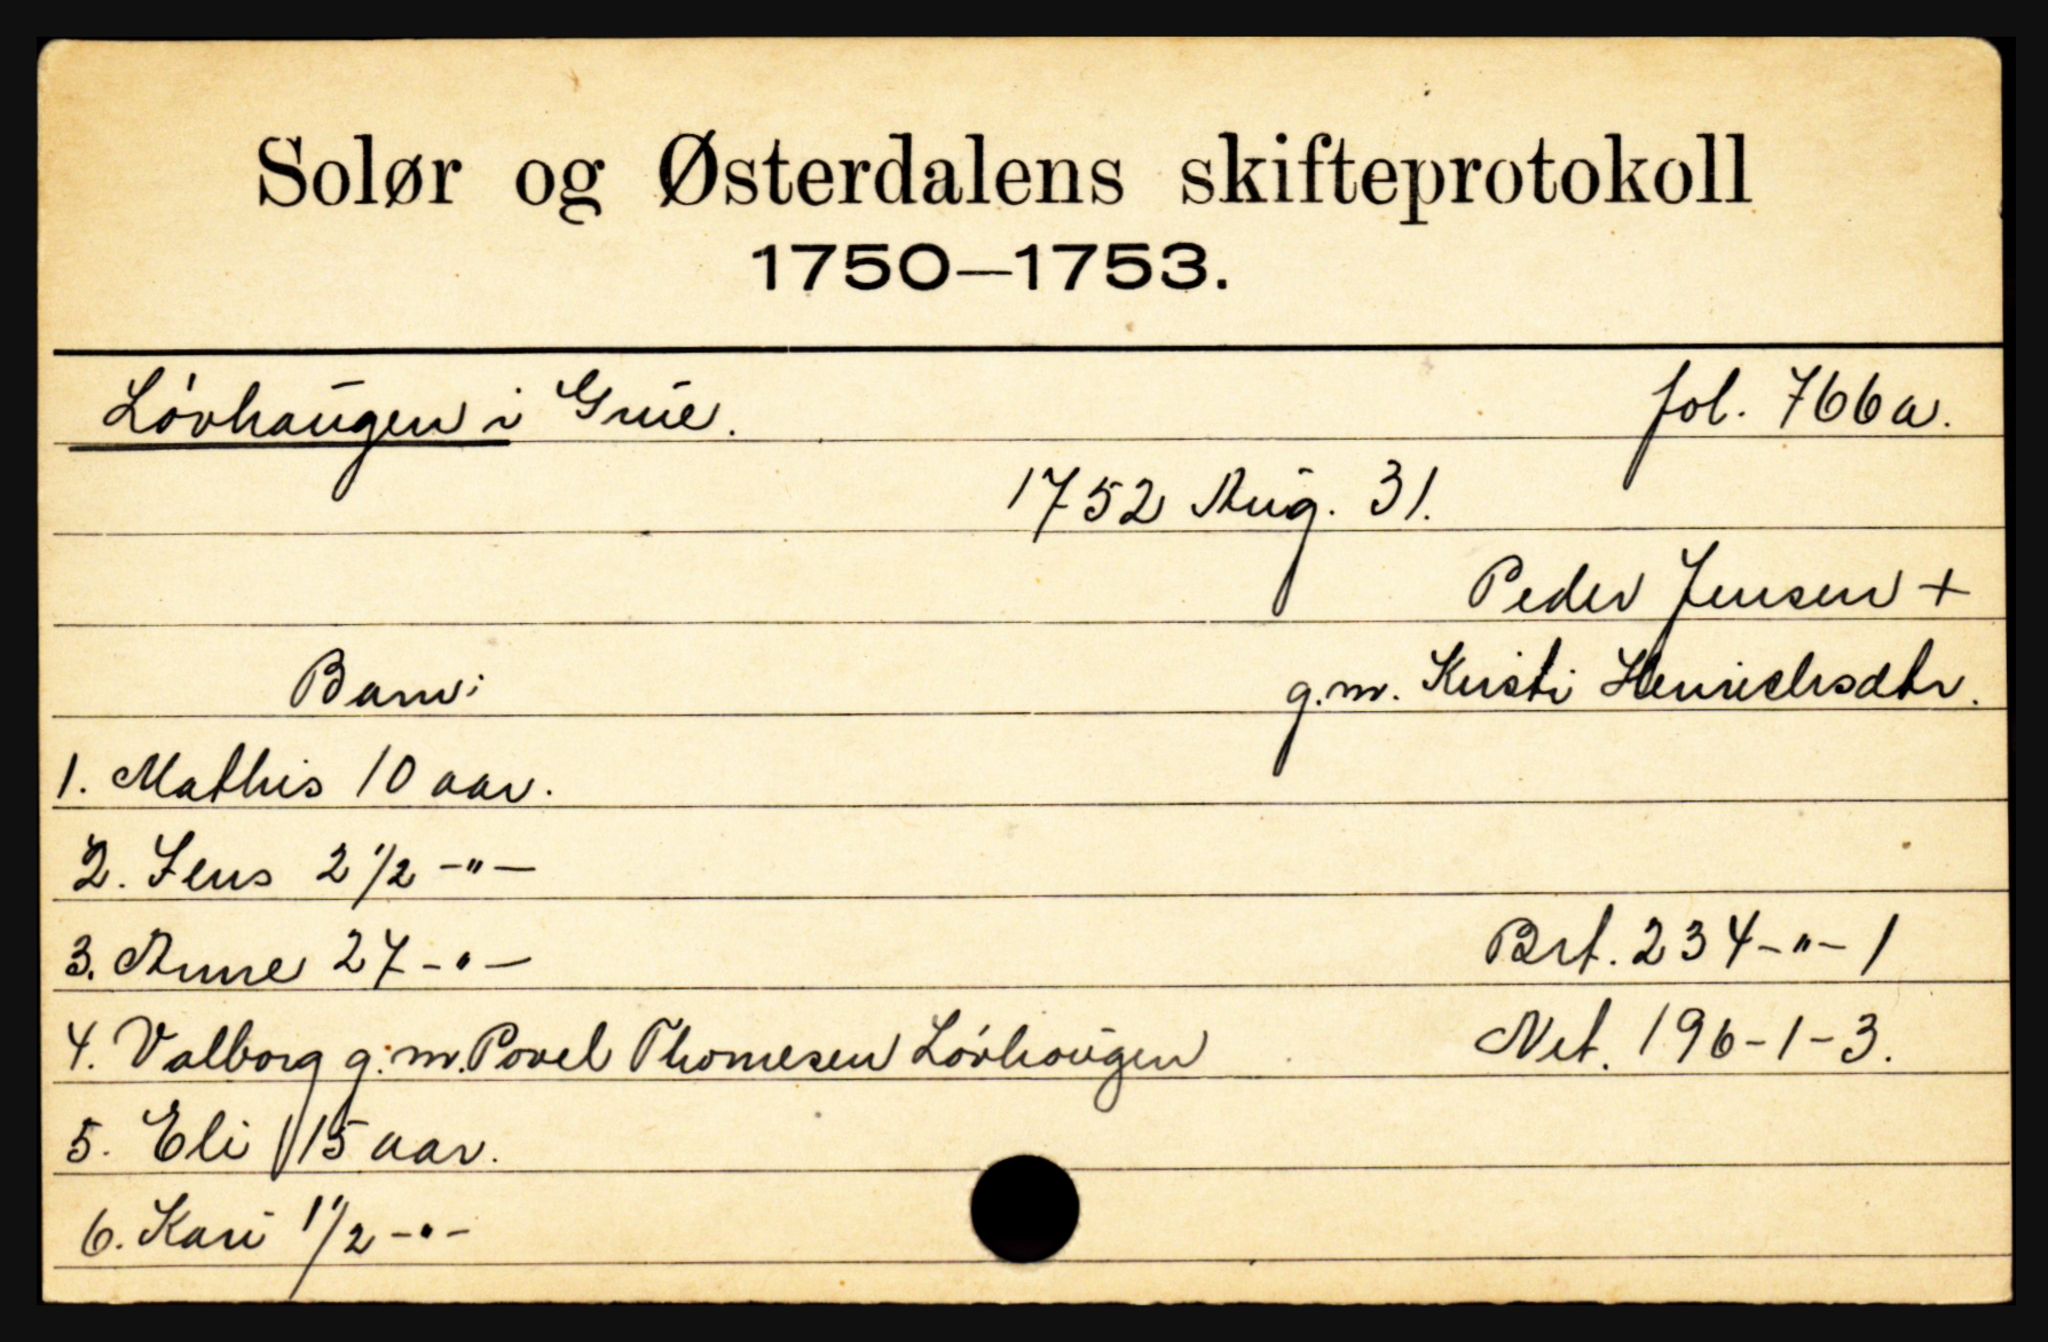 Solør og Østerdalens skifteprotokoll
1750—1753.
Lövhaugen i Grue. fol. 766a.
1752 Aug. 31.
Peder Jensen +
Barn: g.m. Kirsti Henrichsdtr.
1. Mathis 10 aar.
2. Jens 2 1/2 -"-
3. Anne 27 -"- Brt. 234-"-1
4. Valborg g.m. Povel Thomesen Lövhaugen Net. 196-1-3.
5. Eli 15 aar.
6. Kari 1 1/2 -"-